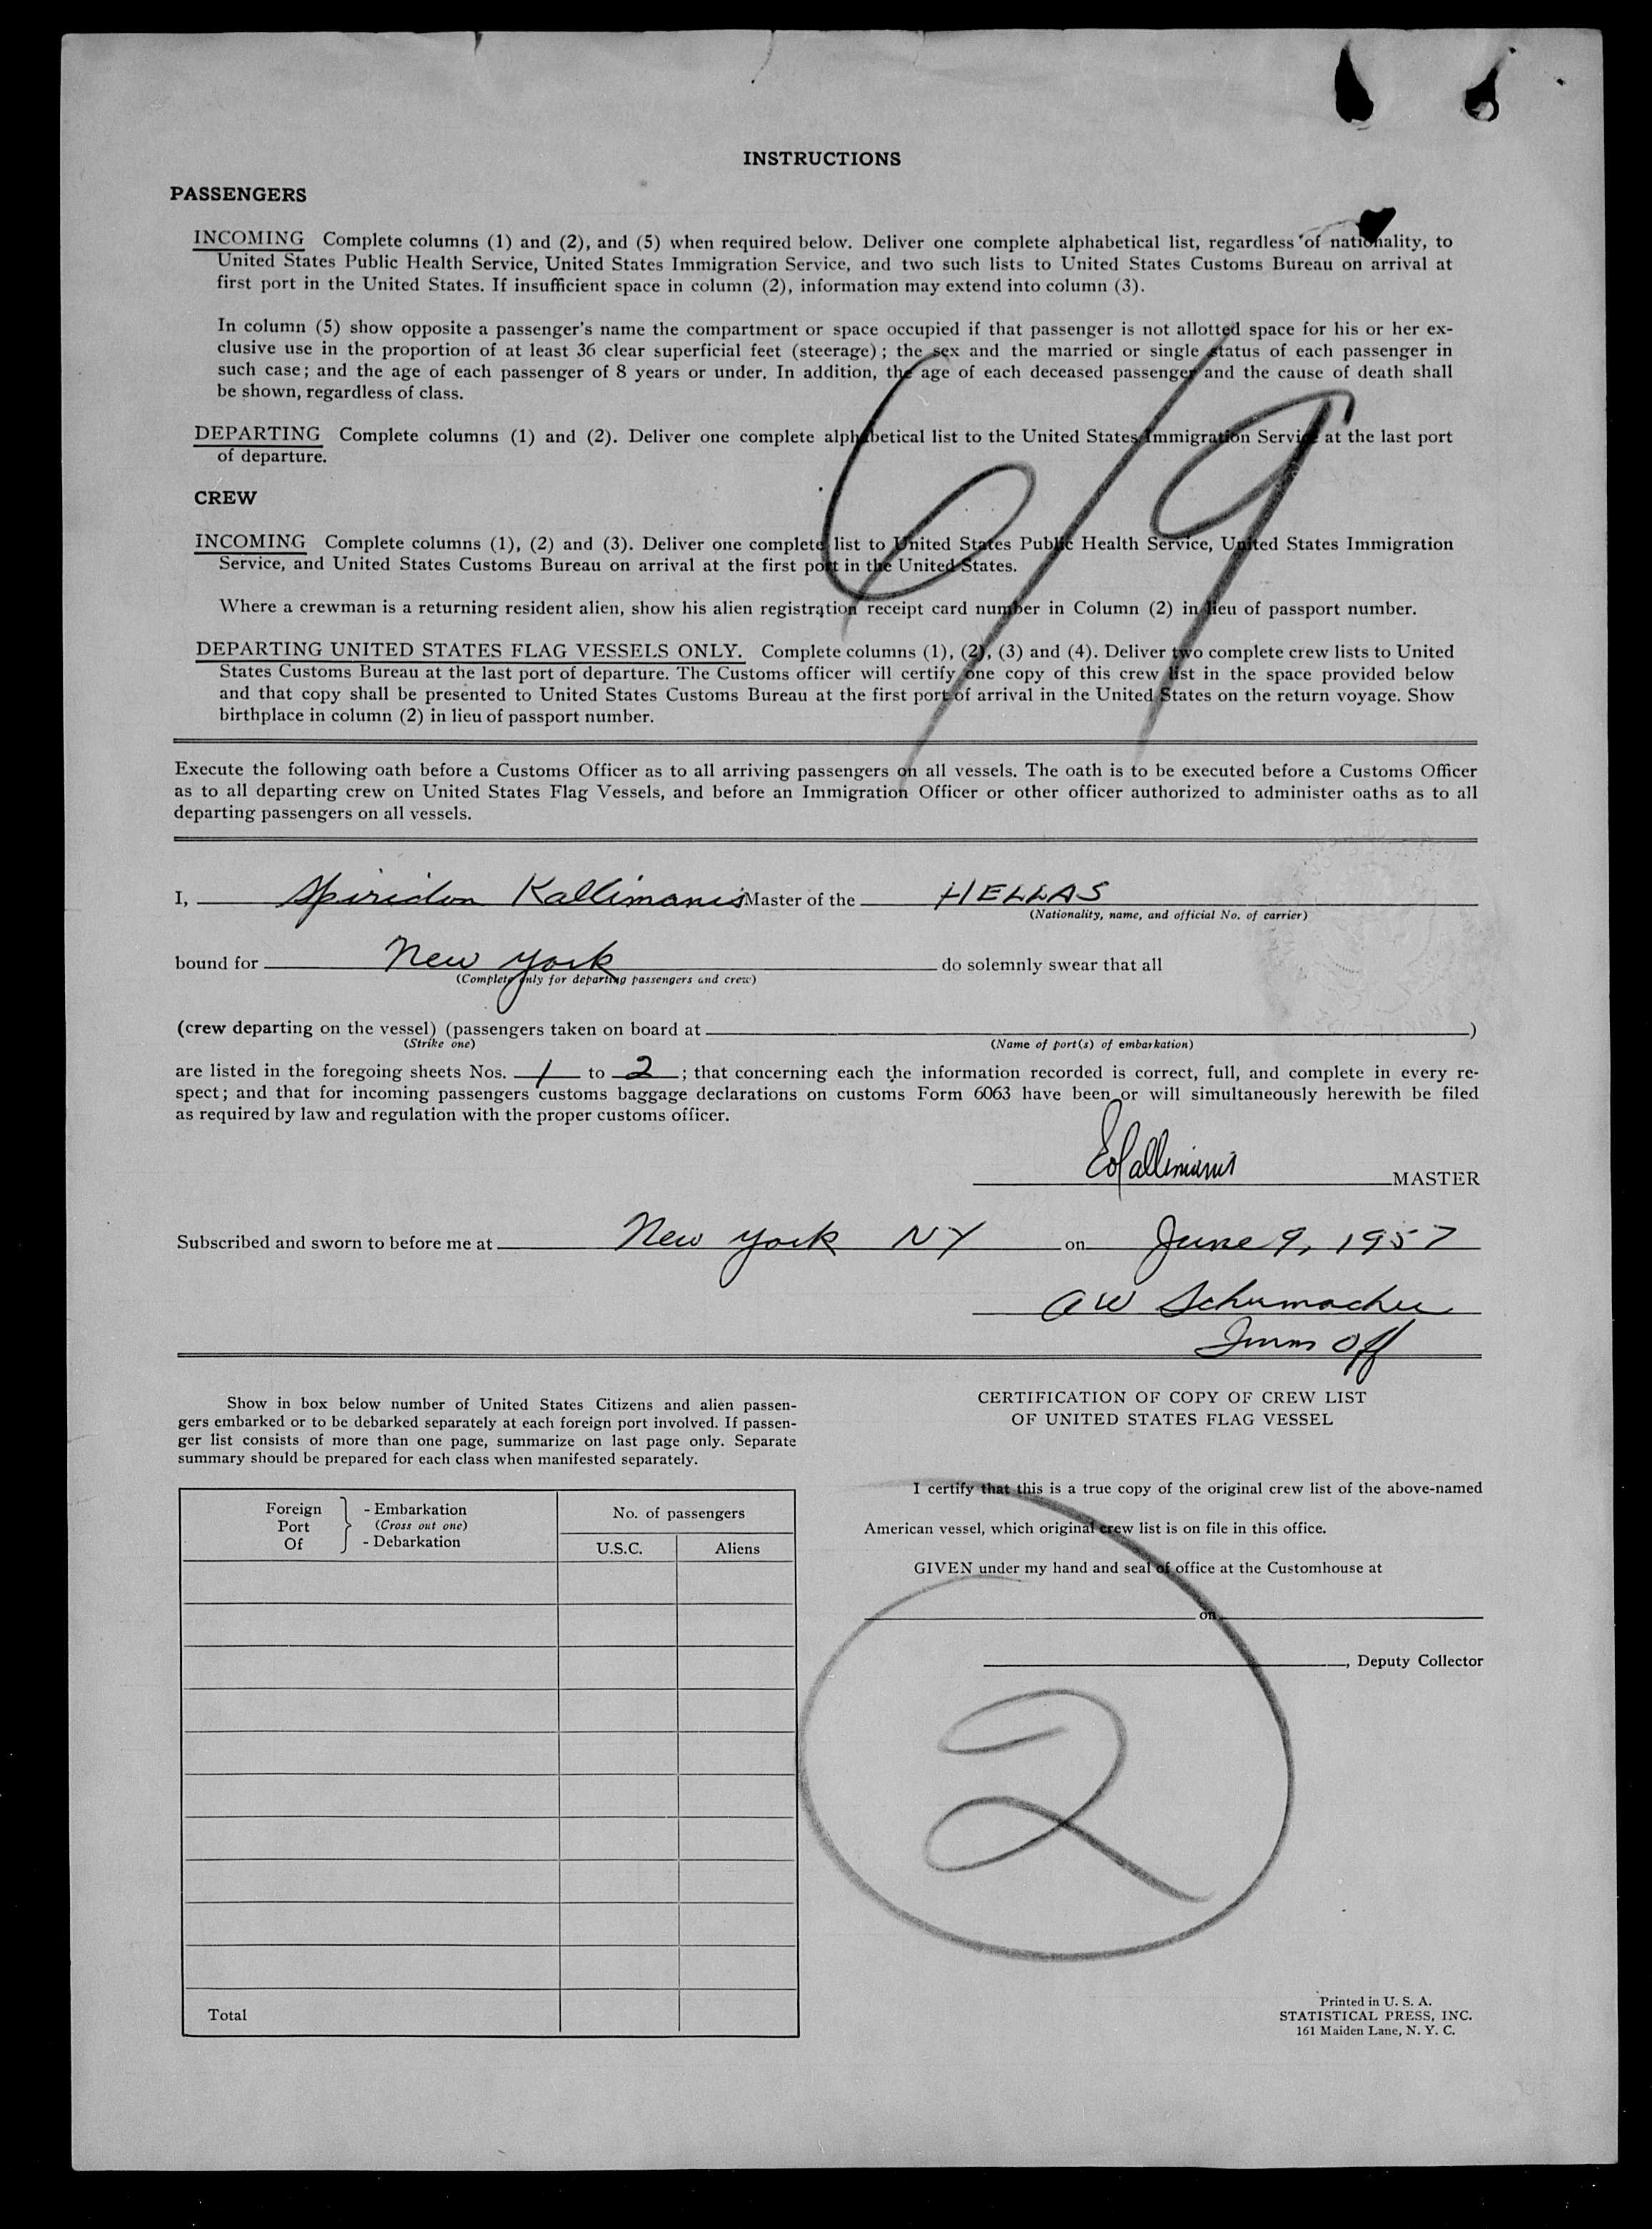 INSTRUCTIONS
PASSENGERS
INCOMING Complete columns (1) and (2), and (5) when required below. Deliver one complete alphabetical list, regardless of nationality, to
United States Public Health Service, United States Immigration Service, and two such lists to United States Customs Bureau on arrival at
first port in the United States. If insufficient space in column (2), information may extend into column (3).
In column (5) show opposite a passenger's name the compartment or space occupied if that passenger is not allotted space for his or her ex-
clusive use in the proportion of at least 36 clear superficial feet (steerage); the sex and the married or single status of each passenger in
such case; and the age of each passenger of 8 years or under. In addition, the age of each deceased passenger and the cause of death shall
be shown, regardless of class.
DEPARTING Complete columns (1) and (2). Deliver one complete alphabetical list to the United States Immigration Service at the last port
of departure.
6/9
CREW
INCOMING Complete columns (1), (2) and (3). Deliver one complete list to United States Public Health Service, United States Immigration
Service, and United States Customs Bureau on arrival at the first port in the United States.
Where a crewman is a returning resident alien, show his alien registration receipt card number in Column (2) in lieu of passport number.
DEPARTING UNITED STATES FLAG VESSELS ONLY. Complete columns (1), (2), (3) and (4). Deliver two complete crew lists to United
States Customs Bureau at the last port of departure. The Customs officer will certify one copy of this crew list in the space provided below
and that copy shall be presented to United States Customs Bureau at the first port of arrival in the United States on the return voyage. Show
birthplace in column (2) in lieu of passport number.
Execute the following oath before a Customs Officer as to all arriving passengers on all vessels. The oath is to be executed before a Customs Officer
as to all departing crew on United States Flag Vessels, and before an Immigration Officer or other officer authorized to administer oaths as to all
departing passengers on all vessels.
I, Spiridon Kallimanis Master of the HELLAS
(Nationality, name, and official No. of carrier)
bound for New York do solemnly swear that all
(Complete only for departing passengers and crew)
(crew departing on the vessel) (passengers taken on board at )
(Strike one) (Name of port(s) of embarkation)
are listed in the foregoing sheets Nos. 1 to 2; that concerning each the information recorded is correct, full, and complete in every re-
spect; and that for incoming passengers customs baggage declarations on customs Form 6063 have been or will simultaneously herewith be filed
as required by law and regulation with the proper customs officer.
MASTER
Subscribed and sworn to before me at New York NY on June 9, 1957
A W Schumacher
Imm Off
Show in box below number of United States Citizens and alien passen-
gers embarked or to be debarked separately at each foreign port involved. If passen-
ger list consists of more than one page, summarize on last page only. Separate
summary should be prepared for each class when manifested separately.
Foreign Port Of - Embarkation (Cross out one) - Debarkation
No. of passengers
U.S.C. Aliens
Total
CERTIFICATION OF COPY OF CREW LIST
OF UNITED STATES FLAG VESSEL
I certify that this is a true copy of the original crew list of the above-named
American vessel, which original crew list is on file in this office.
GIVEN under my hand and seal of office at the Customhouse at
on
, Deputy Collector
2
Printed in U. S. A.
STATISTICAL PRESS, INC.
161 Maiden Lane, N. Y. C.